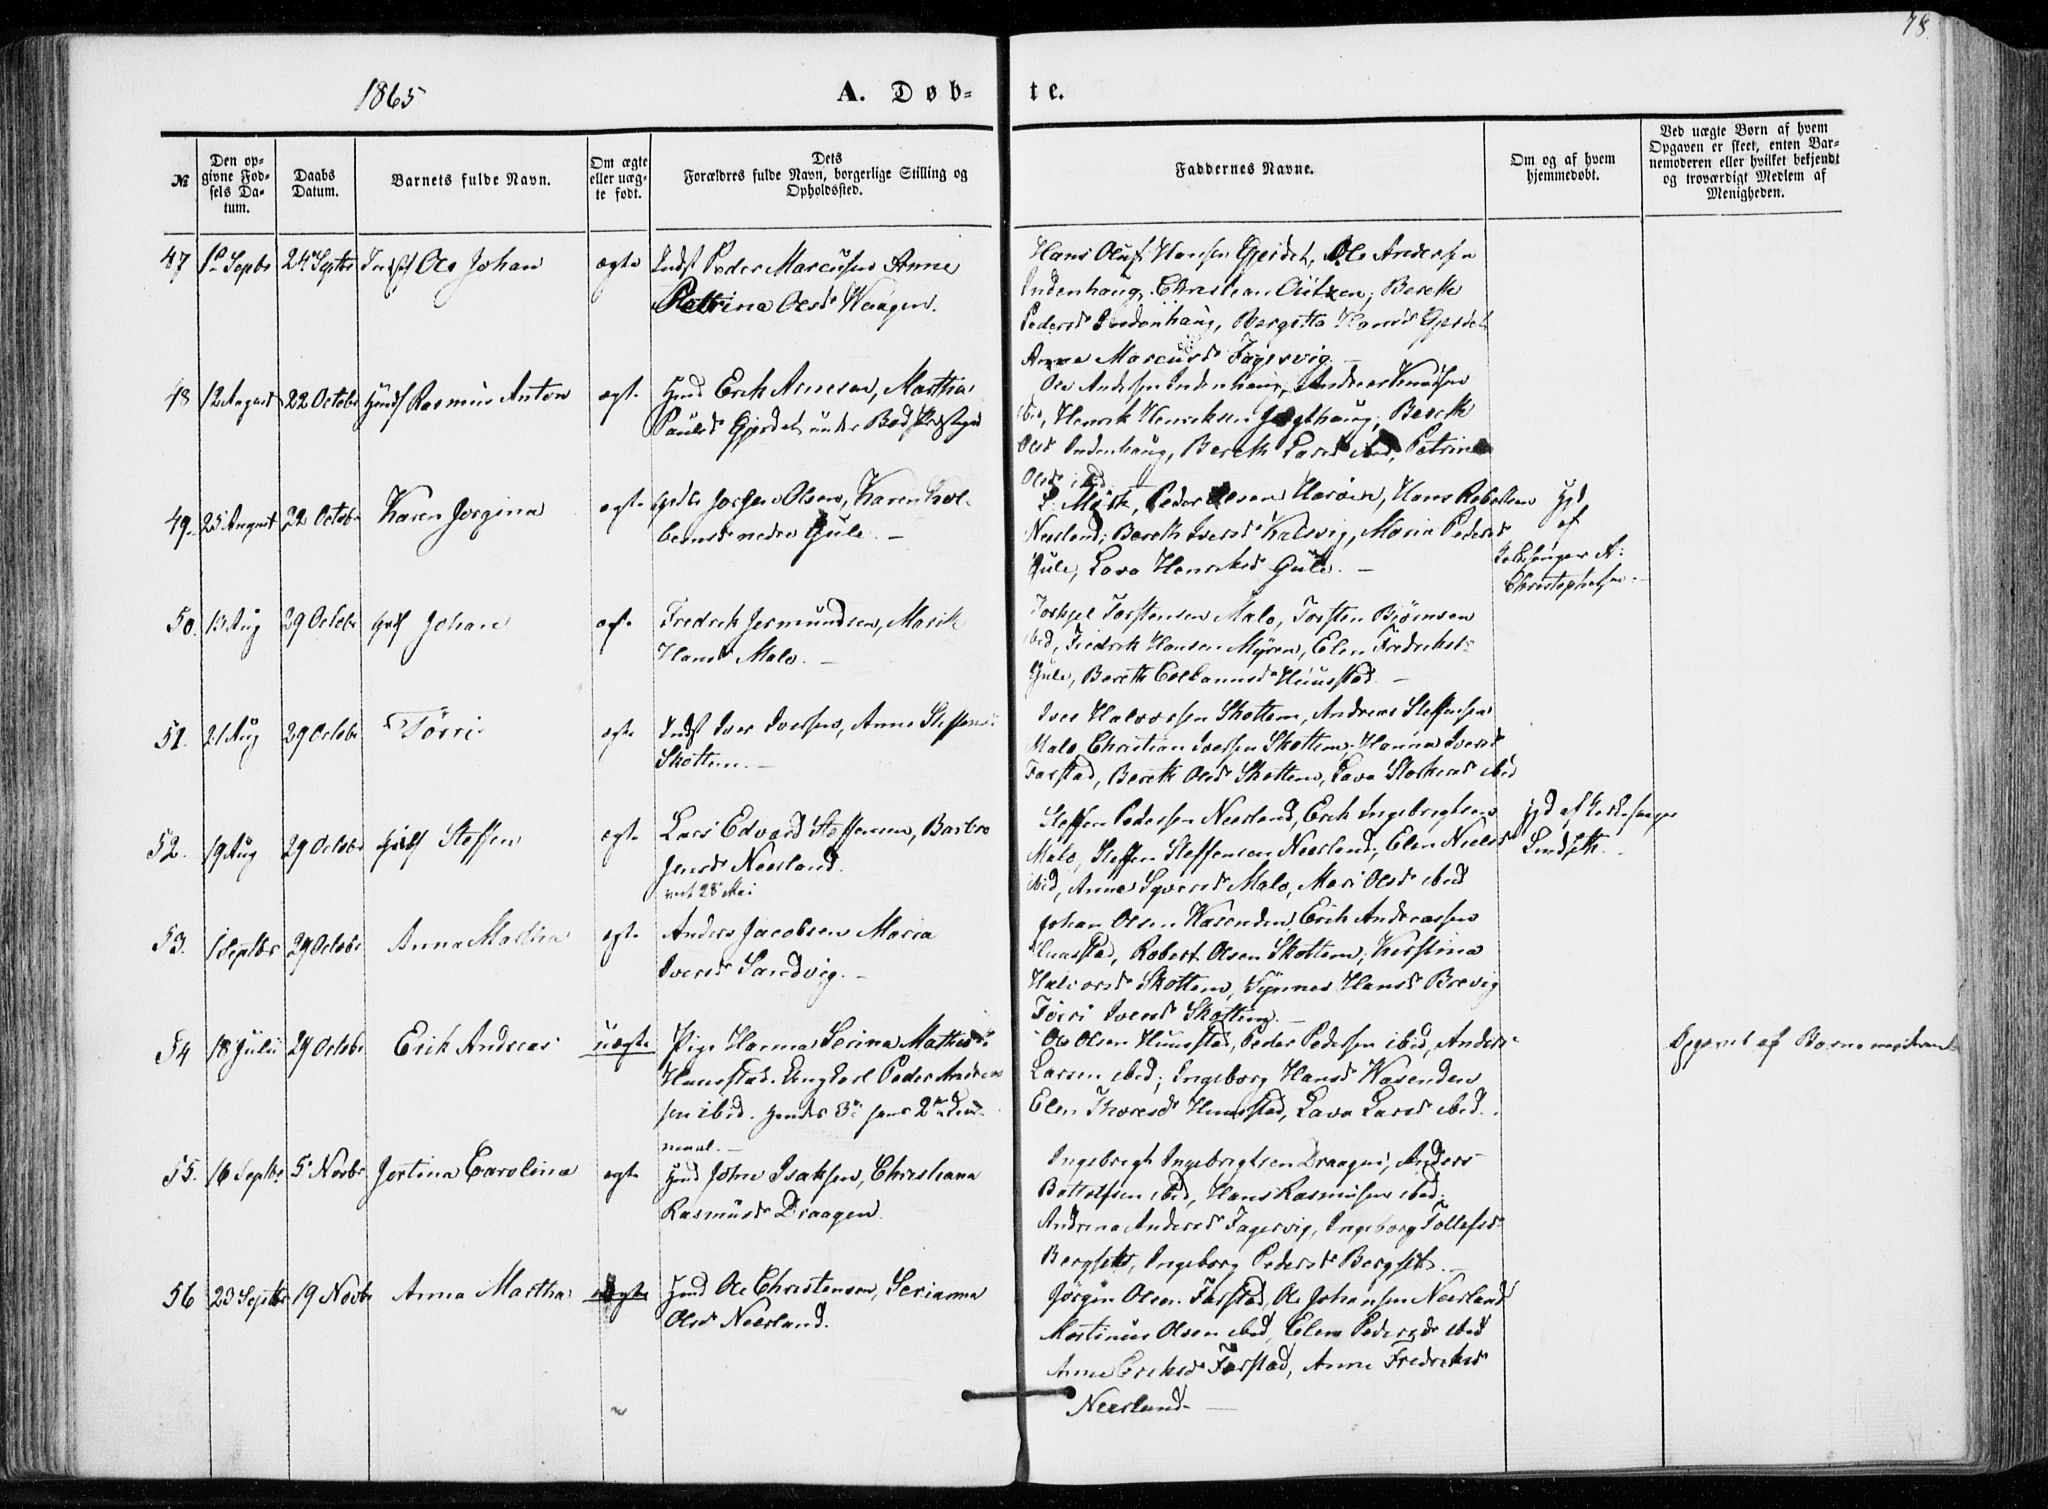 78.
1865
A. Døb- te.
№
Den op-
givne Fød-
sels Da-
tum.
Daabs
Datum.
Barnets fulde Navn.
Om ægte
eller uæg-
te født.
Dets
Forældres fulde Navn, borgerlige Stilling og
Opholdssted.
Faddernes Navne.
Om og af hvem
hjemmedøbt.
Ved uægte Børn af hvem
Opgaven er skeet, enten Bar-
nemoderen eller hvilket bekjendt
og troværdigt Medlem af
Menigheden.
47 1 Septbr 24 Septbr Ole Johan ægte Inds Peder Marcussen Anne
Petrina Olsd Waagen.
Hans Oluf Hansen Gjerdet, Ole Andersen
Indenhaug, Christian ; Bereth
Pedersd Indenhaug, Hansd Gjerdet
Anne Marcusd Fagervig. –
48 12 August 22 Octobr Rasmus Anton ægte Erik Arnesen, Martha
Paulsd Gjerdet under Bod Præstegjd
Ole Andersen Indenhaug, Andreas Knudsen
ibid, Henrik Henriksen , Bereth
Olsd Indenhaug, Bereth Larsd ibid, Petrine
Olsd ibid.
49. 25 August 22 Octobr Karen Jørgina ægte Jørgen Olsen, Karen Kol-
beinsd nedre Gule. –
L. Mørk, Peder Olsen Harøen, Hans
Neerland; Bereth Iversd Kalsvig, Marie Pedersd
Gule, Lava Henriksd Gule. –
Hjd
af
Kirkesanger A.
Christophersen. –
50. 13 Aug 29 Octobr Johan ægte Fredrik Jermundsen, Marith
Hansd Malo. –
Torkjel Torstensen Malo, Torsten Bjørnsen
ibid, Fredrik Hansen Myren, Elen Fredriksd
Gule, Bereth Huustad. –
51. 21 Aug 29 Octobr Tørri ægte Inds Iver Iversen, Anne Steffensd
Skottem. –
Iver Halvorsen Skottem, Andreas Steffensen
Malo, Christian Iversen Skottem; Hanna Iversd
Farstad, Bereth Olsd Skottem, Lava ibid
52. 19 Aug 29 Octobr Steffen ægte Lars Edvard Steffensen, Barbro
Jensd Neerland.
28 Mai
Steffen Pedersen Neerland, Erik Ingebrigtsen
Malo, Steffen Steffensen Neerland; Elen Nielsd
ibid, Anne Syversd Malo, Mari Olsd ibid
hjd af Kirkesanger
Lindseth. –
53. 1 Septbr 29 Octobr Anna Martha ægte Anders Jacobsen Maria
Iversd Sandvig. –
Johan Olsen Wasenden, Erik Andreassen
Huustad, Robert Olsen Skottem; Kirstina
Halvorsd Skottem, Synnev Hansd Brevig
Tørri Iversd Skottem. –
54 18 Julii 29 Octobr Erik Andreas uægte Pige Hanna Serina Mathisd
Huustad. Ungkarl Peder Andreas
sen ibid. hendes 3die hans 2den Leier-
maal. –
Ole Olsen Huustad, Peder Pedersen ibid, Anders
Larsen ibid; Ingeborg Hansd Wasenden
Elen Thoresd Huustad, Lava Larsd ibid.
Opgivet af Barnemoderen
55. 16 Septbr 5 Novbr Jertina Carolina ægte John Isaksen, Christiana
Rasmusd Draagen.
Ingebrigt Ingebrigtsen Draagen, Anders
Bottolfsen ibid, Hans Rasmusen ibid;
Andrina Andersd Fagervig, Ingeborg Tollefsd
Bergset, Ingeborg Pedersd Bergset. –
56 23 Septbr 19 Novbr Anna Martha ægte Ole Christensen, Serianna
Olsd Neerland.
Jørgen Olsen Farstad, Ole Johansen Neerland
Martinus Olsen ibid, Elen Pedersd ibid
Anne Eriksd Farstad, Anne Fredriksd
Neerland. –